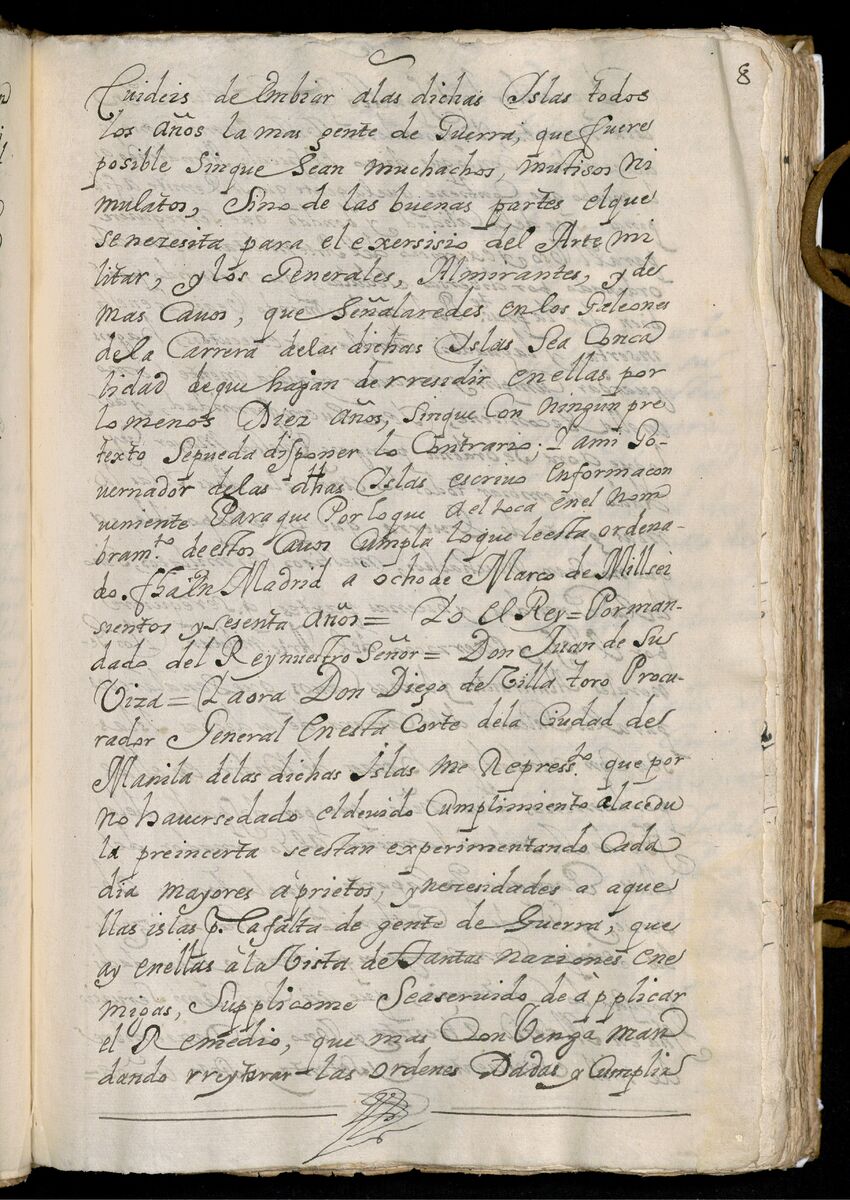 8
Cuideis de embiar alas dichas Islas todos
los años la mas gente de Guerra, que fuere
posible sinque sean muchachos, mutisos ni
mulatos, sino de las buenas partes elque
senezesita para el exersisio del Arte mi
litar, y los Generales, Almirantes, y de
mas Cavos, que señalaredes en los Galeones
de la Carrera delas dichas Islas sea Conca
lidad deque hajan de rresidir en ellas por
lo menos Diez años, sinque Con ningun pre
texto sepueda disponer lo Contrario; Y ami Go-
vernador delas dhas Islas escrivo enforma con
veniente Para que Por lo que a el toca en el nom
bram.to de estos Cavos Cumpla loque le esta ordena-
do. fha En Madrid a ocho de Março de Mill sei
sientos y sesenta años = Yo el Rey = Por man-
dado del Rey nuestro Señor = Don Juan de Su
Viza = Y aora Don Diego de Villa toro Procu-
rador General en esta Corte dela Ciudad de
Manila delas dichas Islas me Repress.to que por
no haversedado el devido Cumplimiento alacedu
la preincerta se estan experimentando Cada
dia mayores aprietos, y nezesidades a aque
llas islas p.r la falta de gente de Guerra, que
ay en ellas a la Vista de Tantas naziones ene
migas, Supplicome Seaservido de applicar
el Remedio, que mas ConVenga man
dando rreyterar las ordenes Dadas y Cumplir